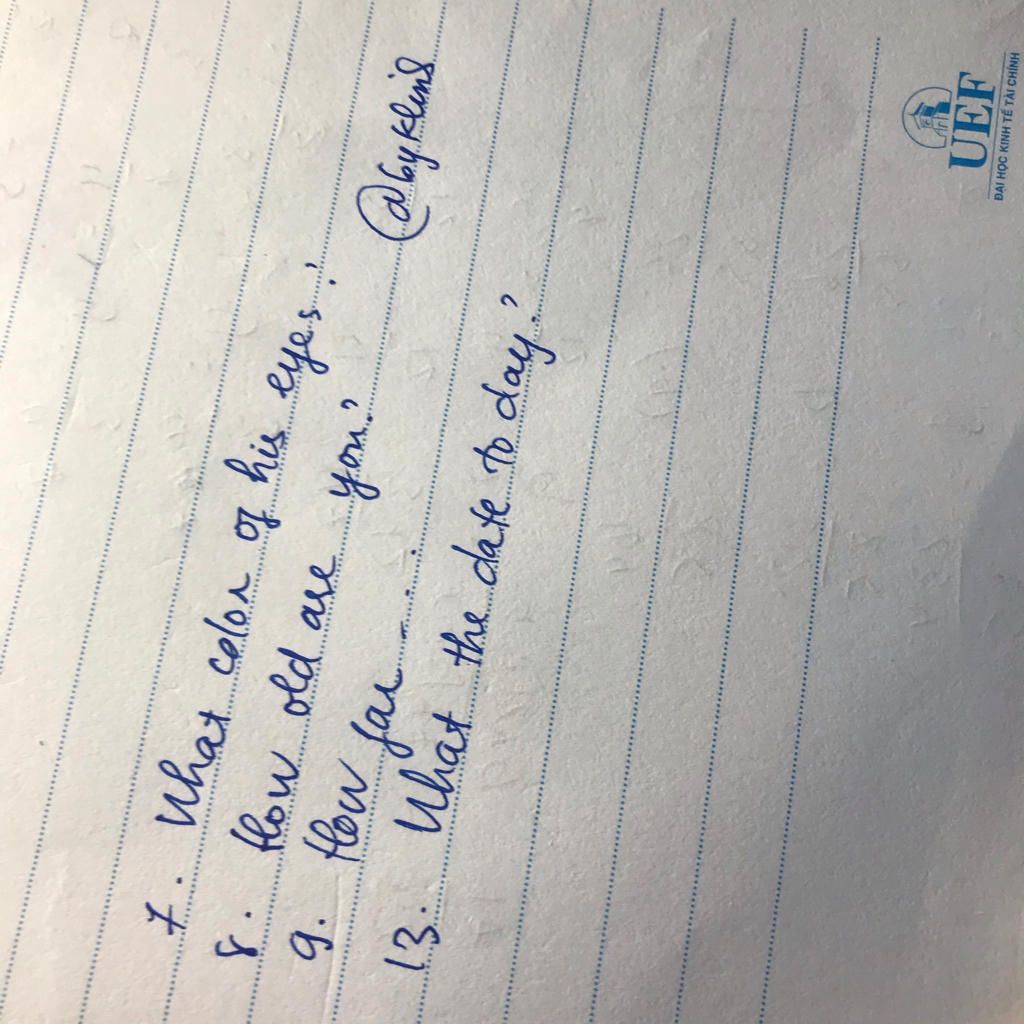 7. What color of his eyes?
8. How old are you?
9. How far ----.
@by.kling
13. What the date to day?
UEF
ĐẠI HỌC KINH TẾ TÀI CHÍNH